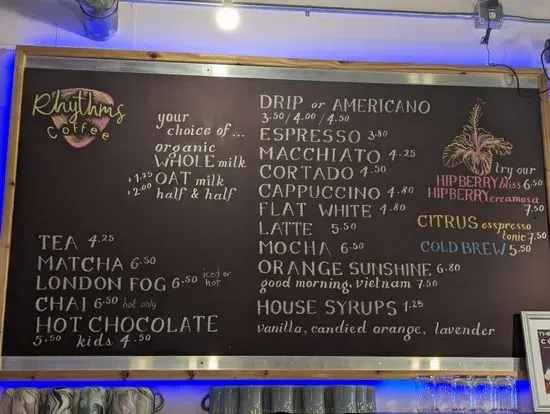 Rhythms
Coffee
your
choice of...
organic
WHOLE milk
+1.25 OAT milk
+2.00 half & half
TEA 4.25
MATCHA 6.50
LONDON FOG 6.50 iced or hot
CHAI 6.50 hot only
HOT CHOCOLATE
5.50 kids 4.50
DRIP or AMERICANO
3.50/4.00/4.50
ESPRESSO 3.80
MACCHIATO 4.25
CORTADO 4.50
CAPPUCCINO 4.80
FLAT WHITE 4.80
LATTE 5.50
MOCHA 6.50
ORANGE SUNSHINE 6.80
good morning, vietnam 7.50
HOUSE SYRUPS 1.25
vanilla, candied orange, lavender
try our
HIPBERRY bliss 6.50
HIPBERRY creamosa
7.50
CITRUS esspresso
tonic 7.50
COLD BREW 5.50